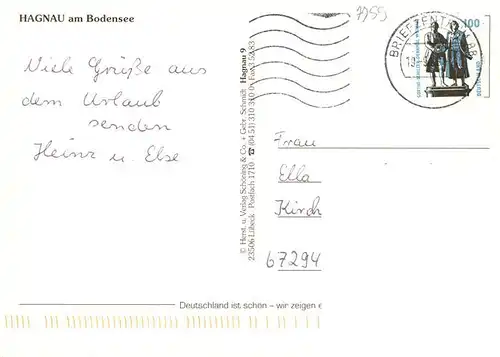 HAGNAU am Bodensee
7755
Viele Grüße aus
dem Urlaub
senden
Heinz u. Else
© Herst. u. Verlag Schöning & Co. + Gebr. Schmidt Hagnau 9
23506 Lübeck Postfach 1710 ☎ (04 51) 310 310
BRIEFZENTRUM
100
Frau
Ella
Kirch
67294
Deutschland ist schön – wir zeigen e